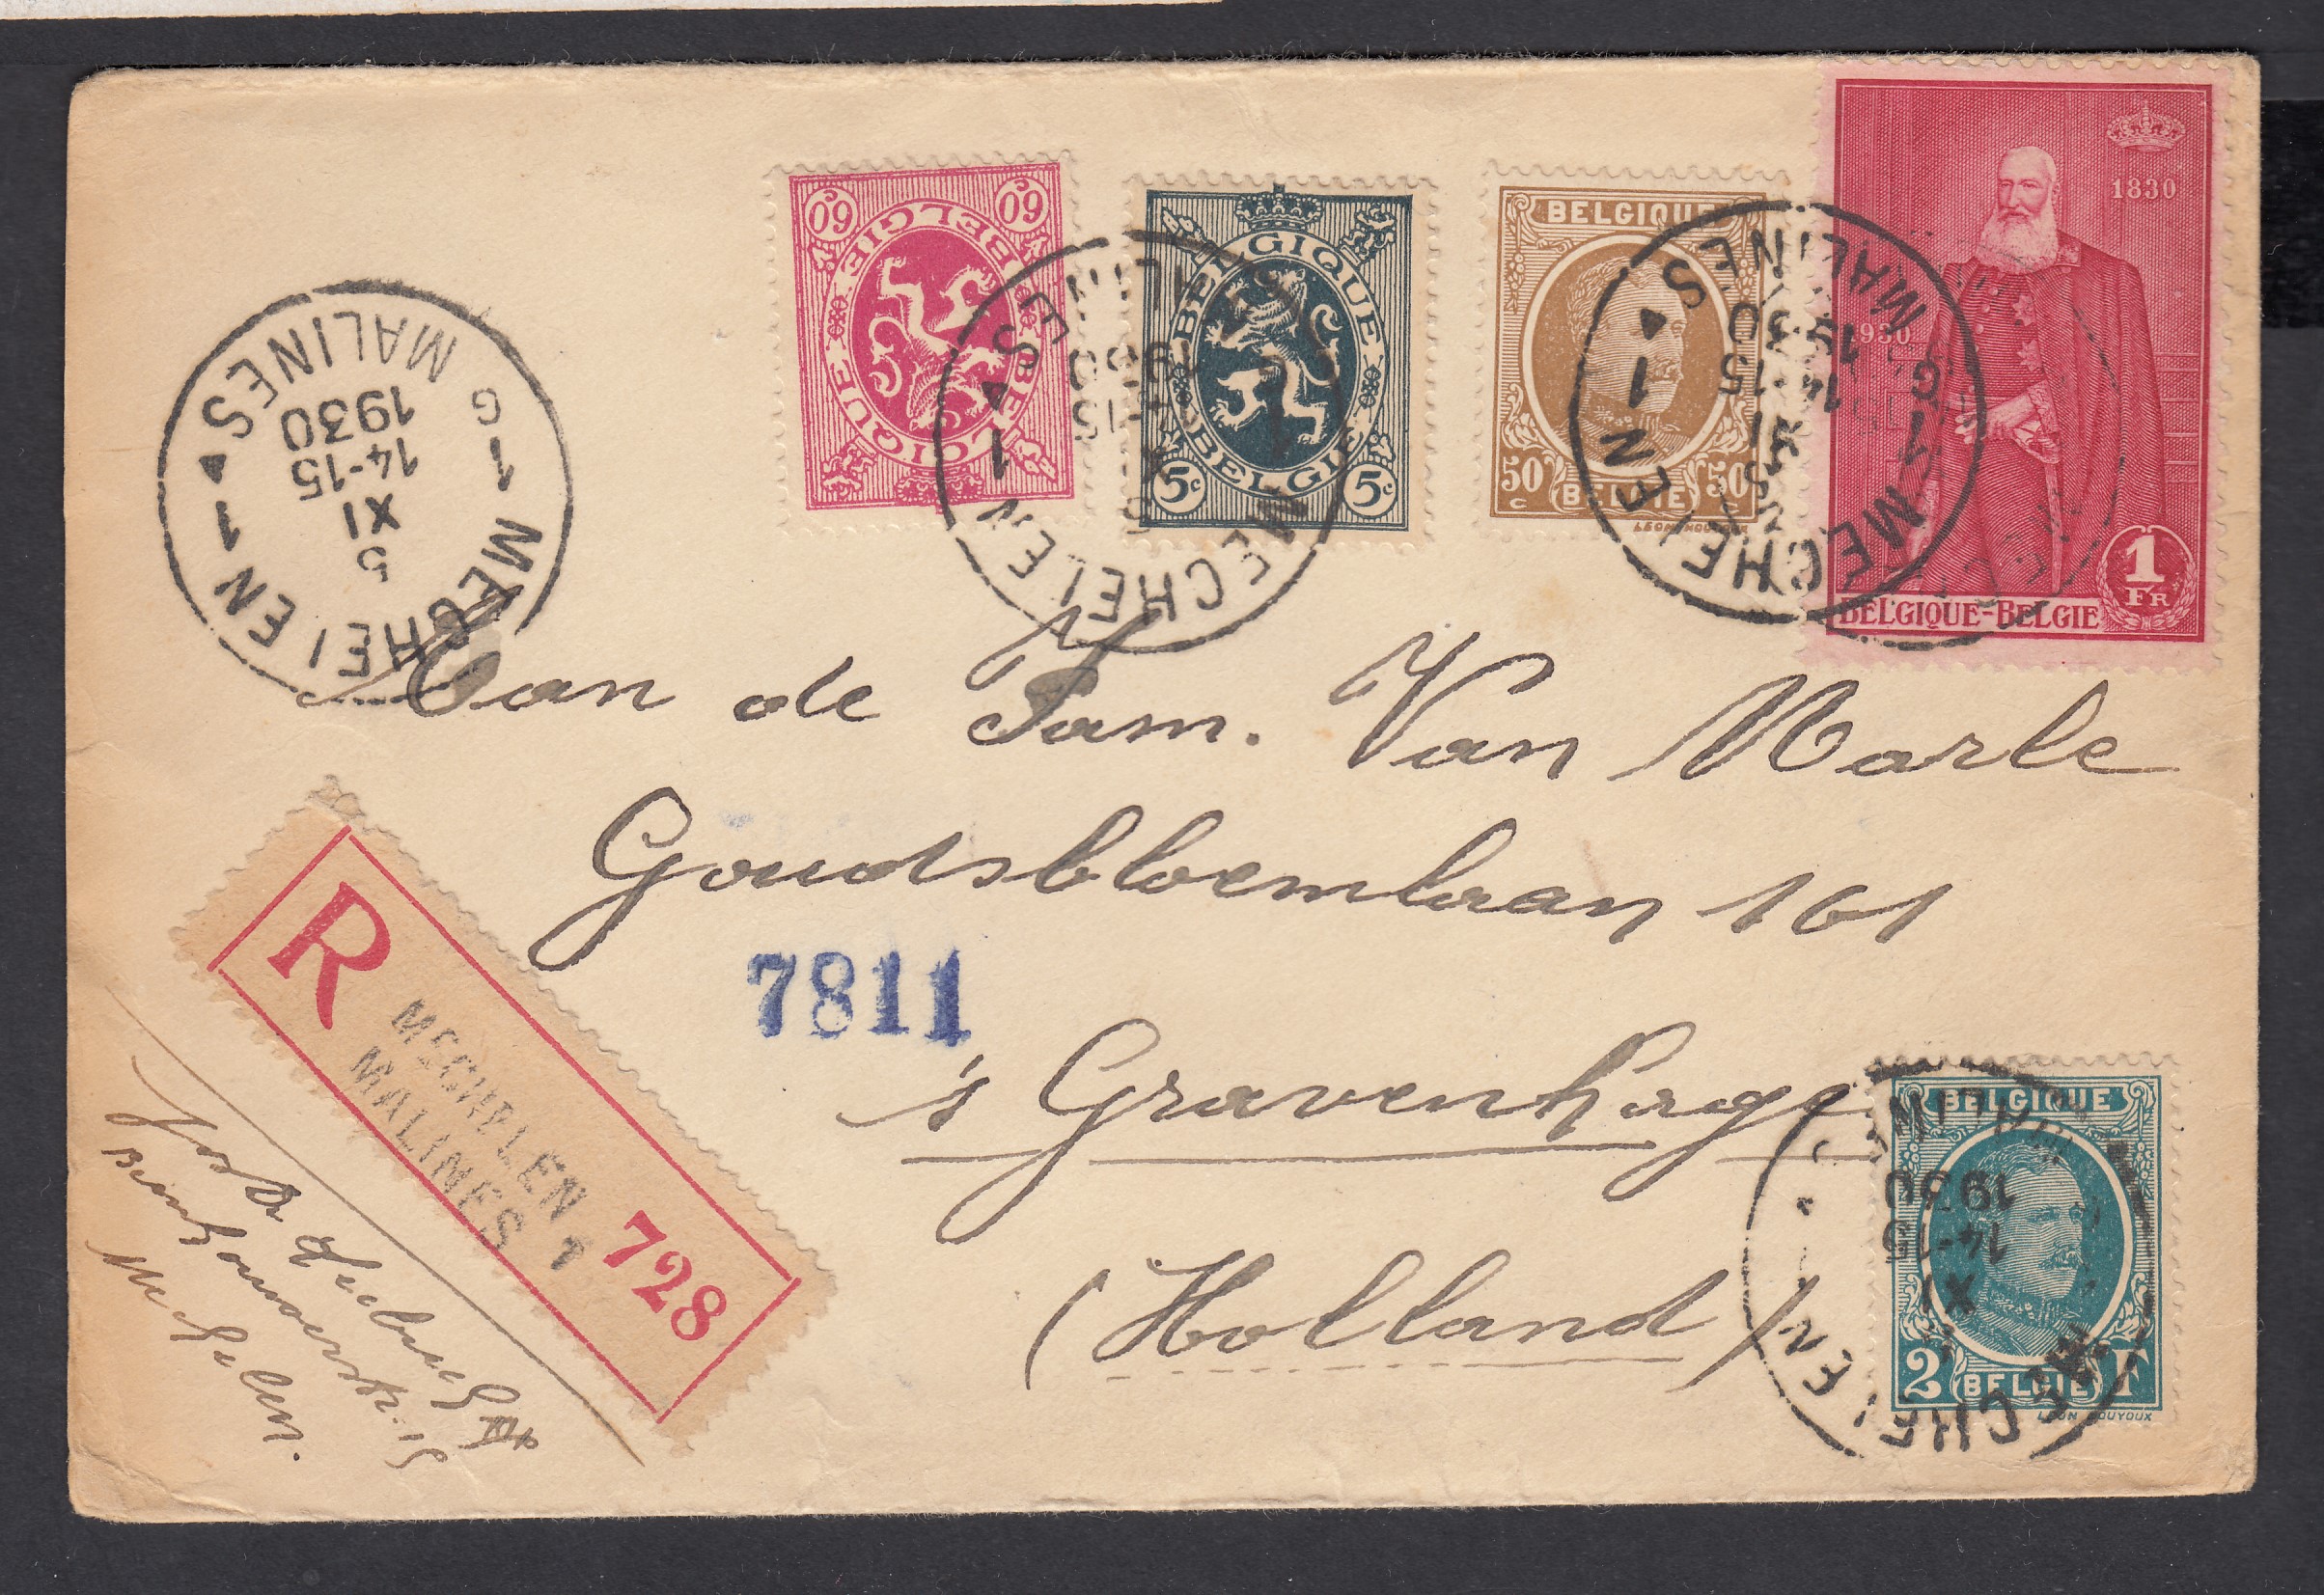 60 60
BELGIË
BELGIQUE
BELGIQUE
5c 5c
BELGIE
BELGIQUE
50 50
C
BELGIË
1830
1930
1
FR
BELGIQUE-BELGIE
1 MECHELEN 1
G MALINES
5
XI
14-15
1930
MECHELEN 1
MALINES
1930
1 MECHELEN 1
G MALINES
XI
14-15
1930
Aan de Fam. Van Marle
Goudsbloemlaan 161
's Gravenhage
(Holland)
7811
R
MECHELEN 1
MALINES
728
Mechelen.
BELGIQUE
2 F
BELGIË
LEON HOUYOUX
MECHELEN
XI
14-15
1930